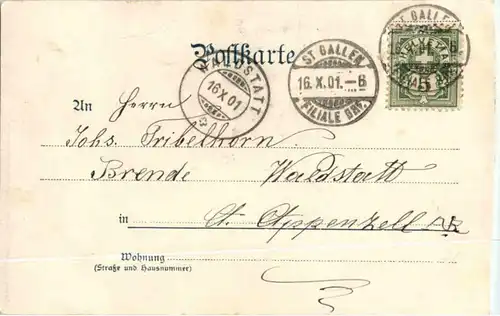 Postkarte
WALDSTATT
16 X 01
ST GALLEN
16. X. 01. – 6
FILIALE BRF.
ST GALLEN
HELVETIA
5
An Herrn
Johs. Tribelhorn.
Brende Waldstatt
in Ct. Appenzell AR
Wohnung
(Straße und Hausnummer)